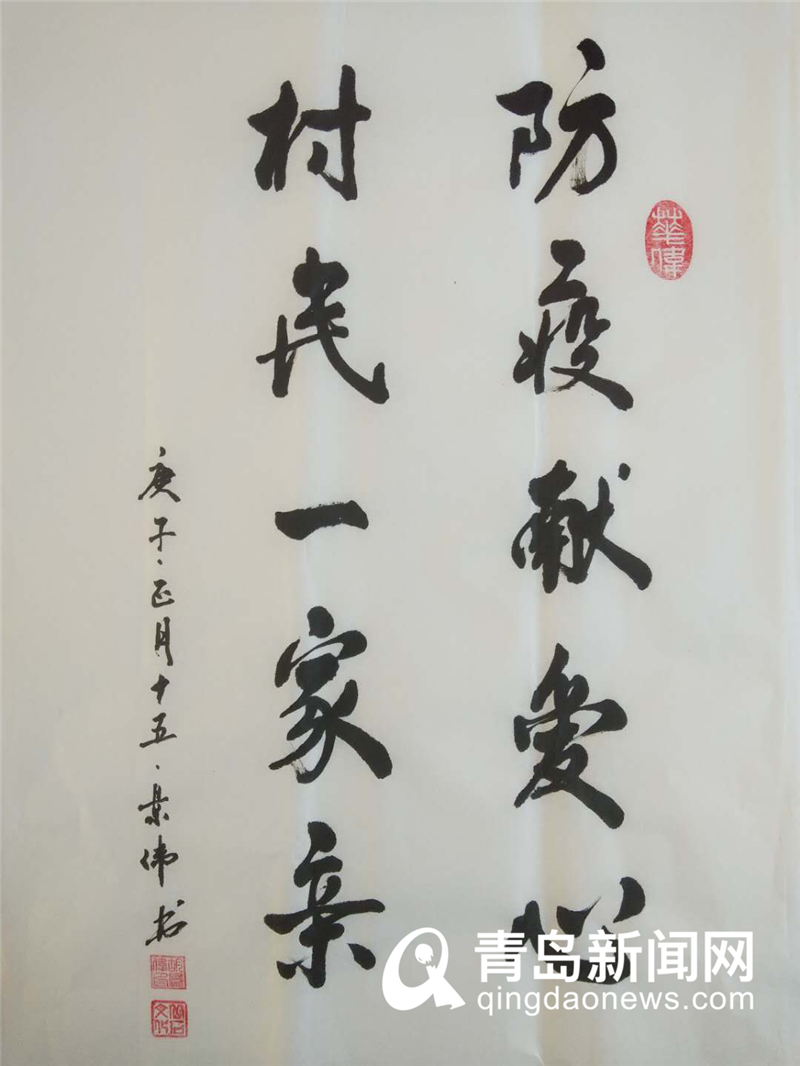 防疫献爱心
村民一家亲
庚子正月十五
伟书
華偉
青岛新闻网
qingdaonews.com